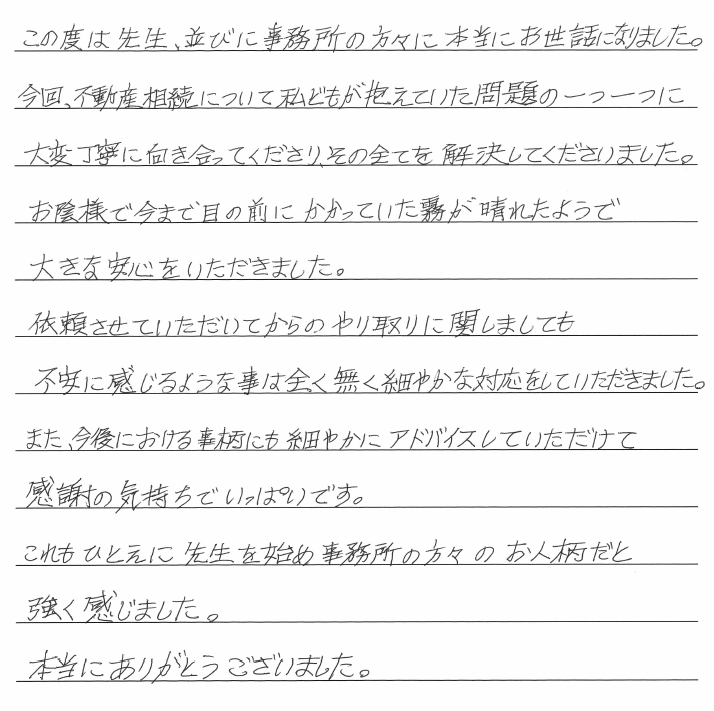 この度は先生、並びに事務所の方々に本当にお世話になりました。
今回、不動産相続について私どもが抱えていた問題の一つ一つに
大変丁寧に向き合ってくださり、その全てを解決してくださいました。
お陰様で今まで目の前にかかっていた霧が晴れたようで
大きな安心をいただきました。
依頼させていただいてからのやり取りに関しましても
不安に感じるような事は全く無く細やかな対応をしていただきました。
また、今後における事柄にも細やかにアドバイスしていただけて
感謝の気持ちでいっぱいです。
これもひとえに先生を始め事務所の方々のお人柄だと
強く感じました。
本当にありがとうございました。